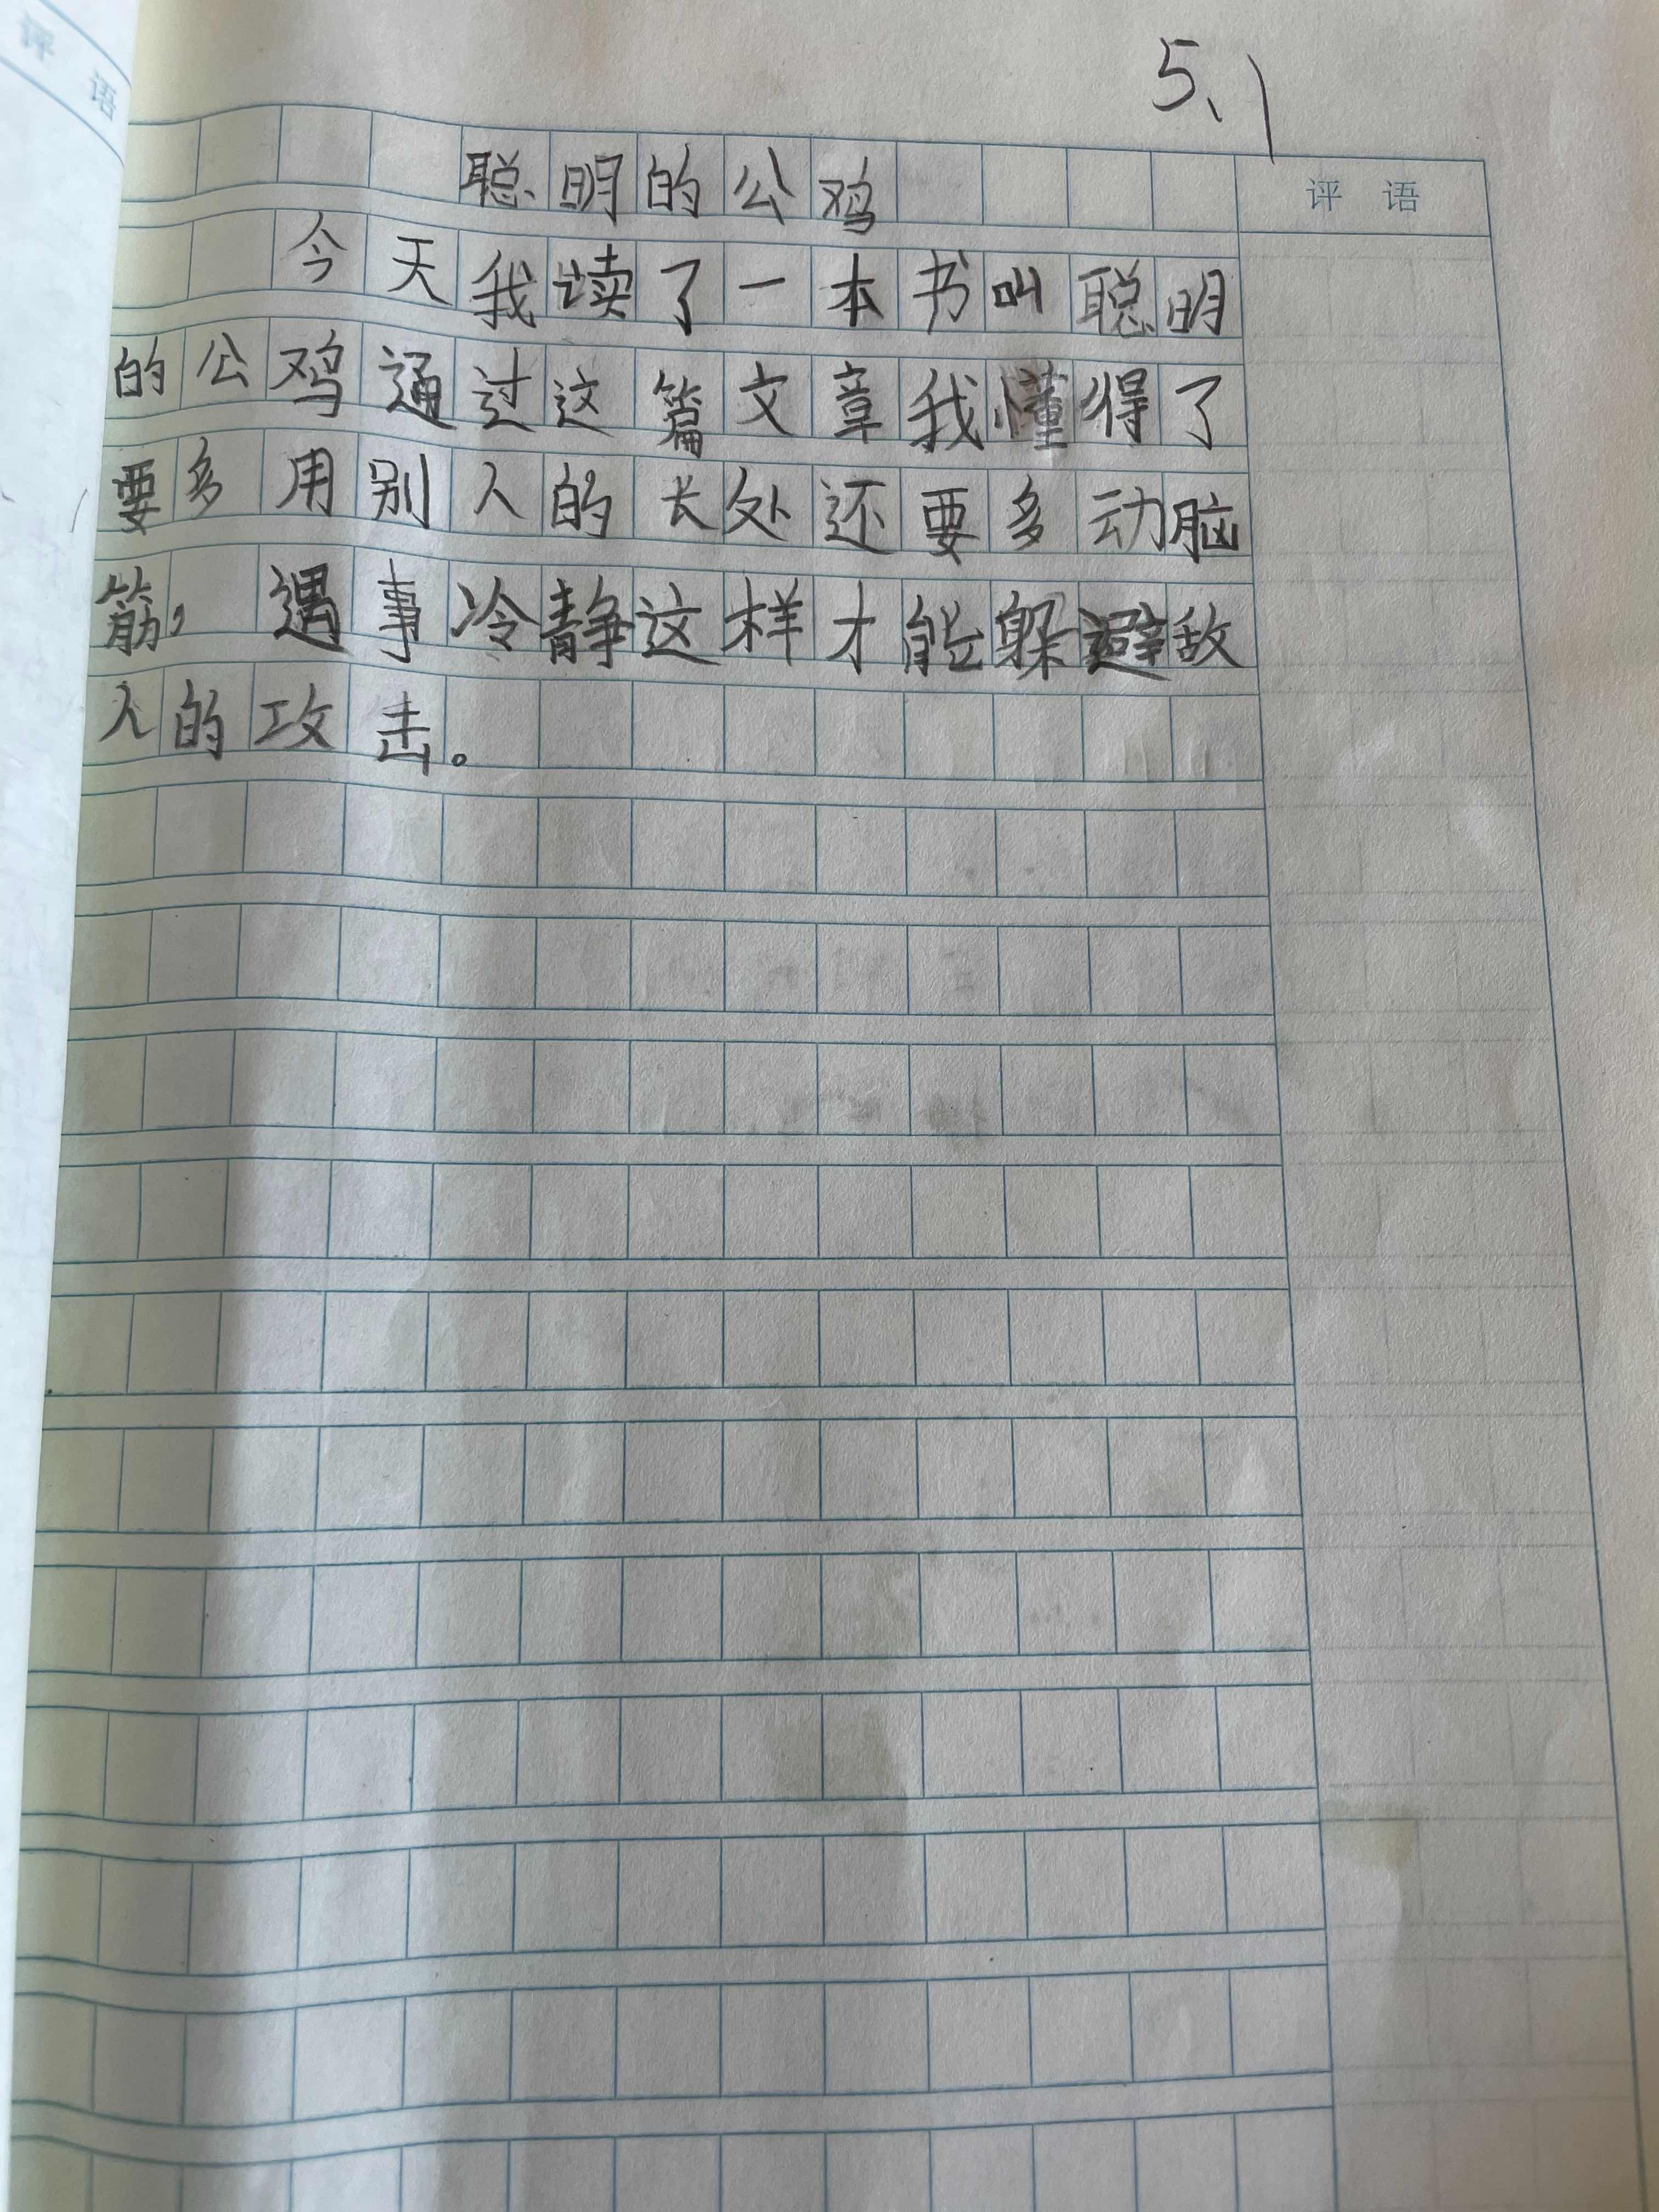 评 语
5、1
聪明的公鸡
评 语
今天我读了一本书叫聪明
的公鸡通过这篇文章我懂得了
要多用别人的长处还要多动脑
筋，遇事冷静这样才能躲避敌
人的攻击。